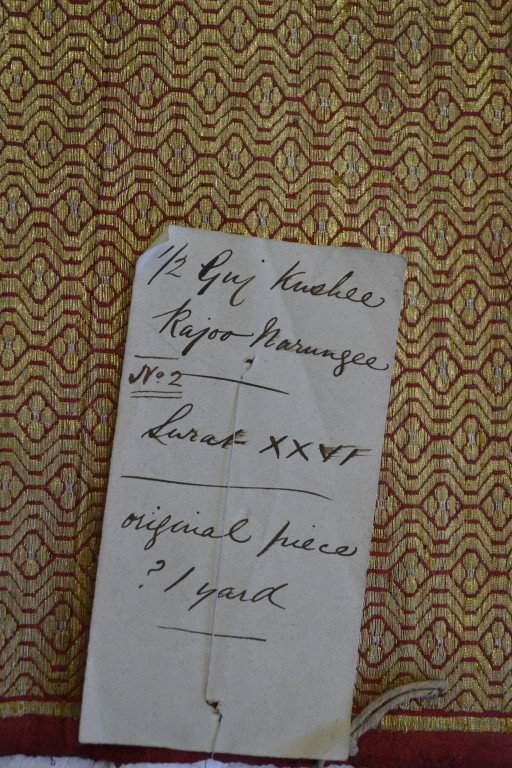 1/2 Guj Kushee
Rajoo Narungee
No 2
Surat XXVI
original piece
? 1 yard